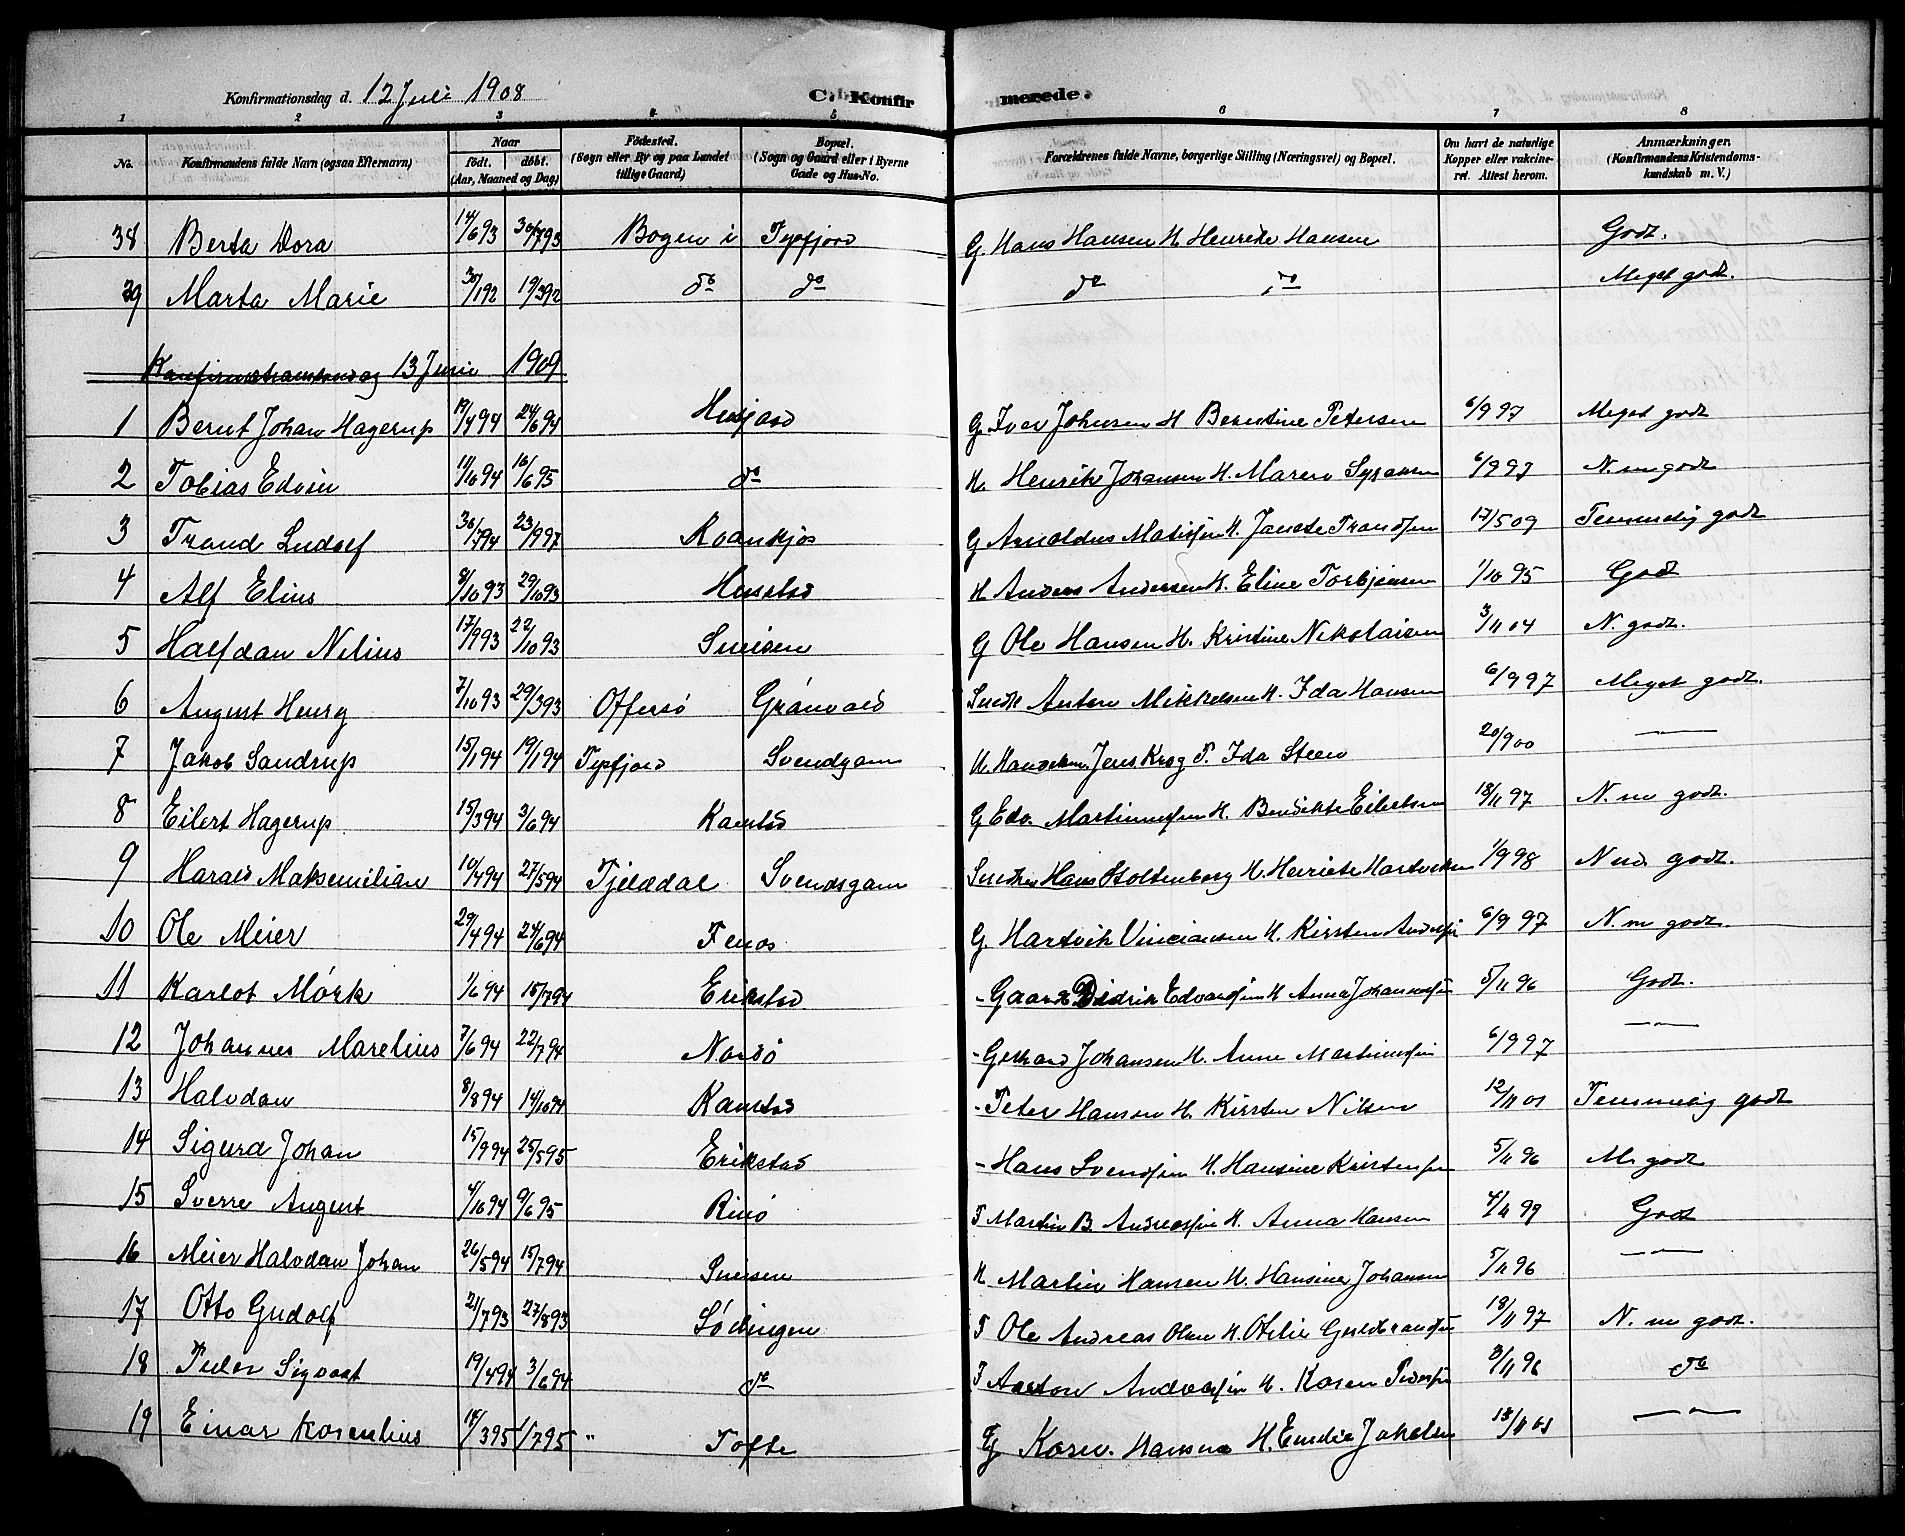 Konfirmationsdag d. 12 Juli 1908 C. Konfirmerede.
1 2 3 4 5 6 7 8
No. Konfirmandens fulde Navn (ogsaa Efternavn) Naar født. døbt. (Aar, Maaned og Dag) Fødested. (Sogn eller By og paa Landet tillige Gaard) Bopæl. (Sogn og Gaard eller i Byerne Gade og Hus-No. Forældrenes fulde Navne, borgerlige Stilling (Næringsvei) og Bopæl. Om havt de naturlige Kopper eller vakcineret. Attest herom. Anmærkninger. (Konfirmandens Kristendomskundskab m. V.)
38 Berta Dora 14/6 93 30/7 93 Bogen i Tysfjord G. Hans Hansen H. Henrike Hansen Godt.
39 Marta Marie 30/1 92 19/3 92 do do do do Meget godt.
Konfirmationsdag 13 Juni 1909
1 Bernt Johan Hagerup 19/4 94 24/6 94 G. Iver Johnsen H. Berntine Petersen 6/9 97 Meget godt
2 Tobias Edvin 11/10 94 16/6 95 do H. Henrik Johansen H. Maren 6/9 97 N. m godt
3 Trand Ludolf 30/7 94 23/9 97 G Arnoldus H. Janete 17/5 09 Temmelig godt
4 Alf Elius 8/10 93 29/10 93 Husstad H Anders Andersen H. Eline Torbjørnsen 1/10 95 God
5 Halfdan Nilius 17/9 93 22/10 93 Sneisen G Ole Hansen H. Kristine Nikolaisen 3/11 04 N. godt.
6 August Henry 7/10 93 29/3 93 Offersø Grønvald Anton Mikkelsen H. Ida Hansen 6/9 97 Meget godt.
7 Jakob Sandrup 15/1 94 19/1 94 Tysfjord Svendsgam H. Jens Krog F. Ida Steen 20/9 00 — " —
8 Eilert Hagerup 15/3 94 3/6 94 Kanstad G Edv. H. Benedikte Eilertsen 18/11 97 N. m godt.
9 Harald Maksemilian 10/4 94 27/5 94 Tjelddal Svendsgam Hans Stoltenberg H. Henriete 1/9 98 godt.
10 Ole Meier 29/4 94 24/6 94 Fenes G Hartvik H. Kirsten 6/9 97 N. m godt.
11 Karlot Mörk 1/6 94 15/7 94 Erikstad - Gaard Didrik H Anna 5/11 96 Godt.
12 Johannes Marelius 7/6 94 22/7 94 Nordø - Gerhard Johansen H. Anne 6/9 97 — " —
13 Halvdan 8/8 94 14/10 94 Kanstad - Peter Hansen H. Kirsten Nilsen 12/11 01 Temmelig godt
14 Sigurd Johan 15/9 94 25/5 95 Erikstad - Hans H. Hansine 5/11 96 M. godt
15 Sverre August 4/10 94 9/6 95 Rinø F Martin B. H. Anna Hansen 4/11 99 Godt
16 Meier Halvdan Johan 26/5 94 15/7 94 Sneisen H Martin Hansen H. Hansine Johansen 5/11 96 — " —
17 Otto Gudolf 21/7 93 27/8 93 Lödingen F Ole Andreas Olsen H. Otelie 18/11 97 N. m godt.
18 Peder Sigvart 19/4 94 3/6 94 do F H. Karen 3/11 96 do
19 Einar Kornelius 18/3 95 1/7 95 " Tofte Hansen H. Emelie 13/11 01 — " —